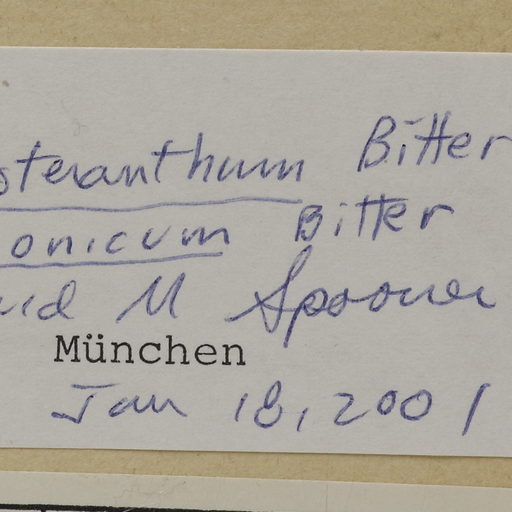 steranthum Bitter
onicum Bitter
vid M Spooner
München
Jan 18, 2001